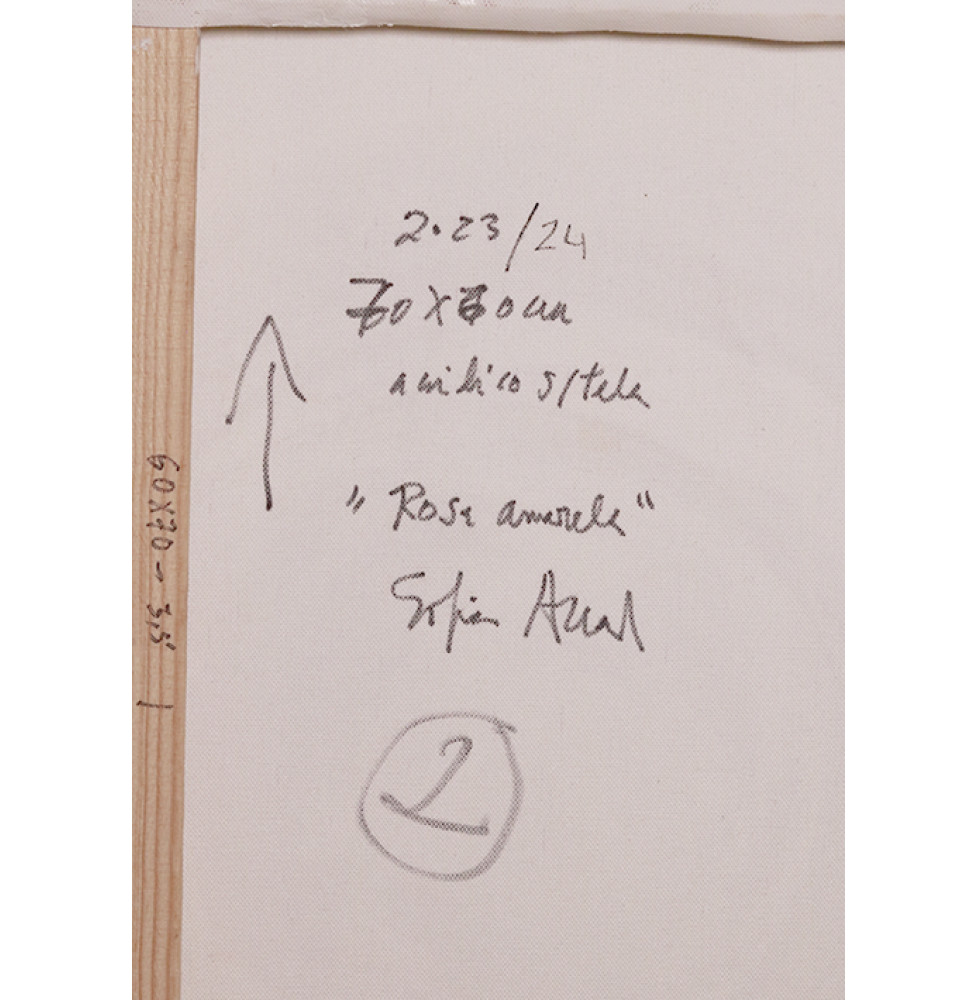 2.23/24
70x60cm
acrílico s/tela
"Rosa amarela"
Sofia Areal
2
60x70 - 3,5